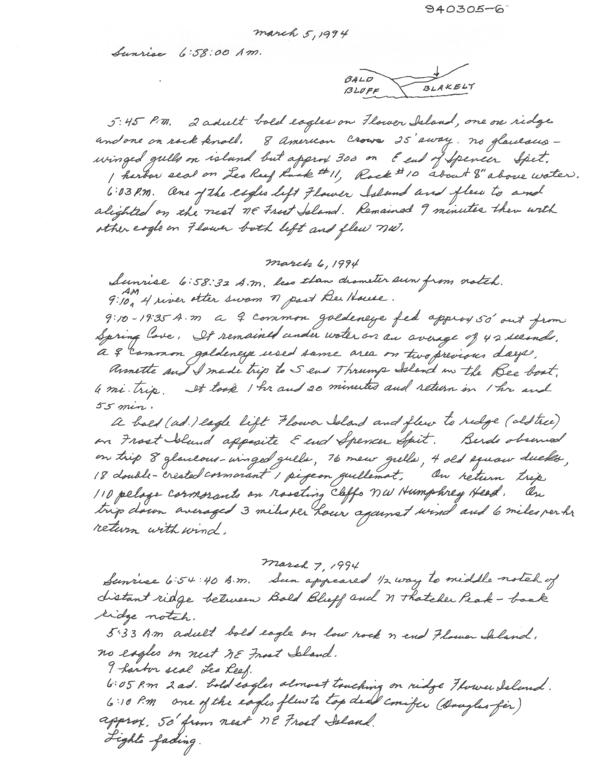 940305-6
March 5, 1994
Sunrise 6:58:00 A.m.
BALD BLUFF
BLAKELY
5:45 P.m. 2 adult bald eagles on Flower Island, one on ridge
and one on rock knoll. 8 American crows 25' away. no glaucous-
winged gulls on island but approx 300 on E end of Spencer Spit.
1 harbor seal on Leo Reef Rock #11, Rock #10 about 8" above water.
6:03 P.M. One of the eagles left Flower Island and flew to and
alighted on the nest NE Frost Island. Remained 9 minutes then with
other eagle on Flower both left and flew NW.
March 6, 1994
Sunrise 6:58:32 A.m. less than diameter sun from notch.
9:10 AM, 4 river otter swam N past Bee House.
9:10-19:35 A.m a ♀ common goldeneye fed approx 50' out from
Spring Cove. It remained under water on an average of 42 seconds.
A ♀ common goldeneye used same area on two previous days.
Annette and I made trip to S end Thrump Island in the Bee boat.
6 mi. trip. It took 1 hr and 20 minutes and return in 1 hr and
55 min.
A bald (ad.) eagle left Flower Island and flew to ridge (old tree)
on Frost Island opposite E end Spencer Spit. Birds observed
on trip 8 glaucous-winged gulls, 76 mew gulls, 4 old squaw ducks,
18 double-crested cormorant 1 pigeon guillemot. On return trip
110 pelagic cormorants on roosting cliffs NW Humphrey Head. On
trip down averaged 3 miles per hour against wind and 6 miles per hr
return with wind.
March 7, 1994
Sunrise 6:54:40 A.m. Sun appeared 1/2 way to middle notch of
distant ridge between Bald Bluff and N Thatcher Peak - back
ridge notch.
5:33 Am adult bald eagle on low rock n end Flower Island.
no eagles on nest NE Frost Island.
9 harbor seal Leo Reef.
6:05 Pm 2 ad. bald eagles almost touching on ridge Flower Island.
6:10 P.m one of the eagles flew to top dead conifer (Douglas fir)
approx. 50' from nest NE Frost Island.
Lights fading.